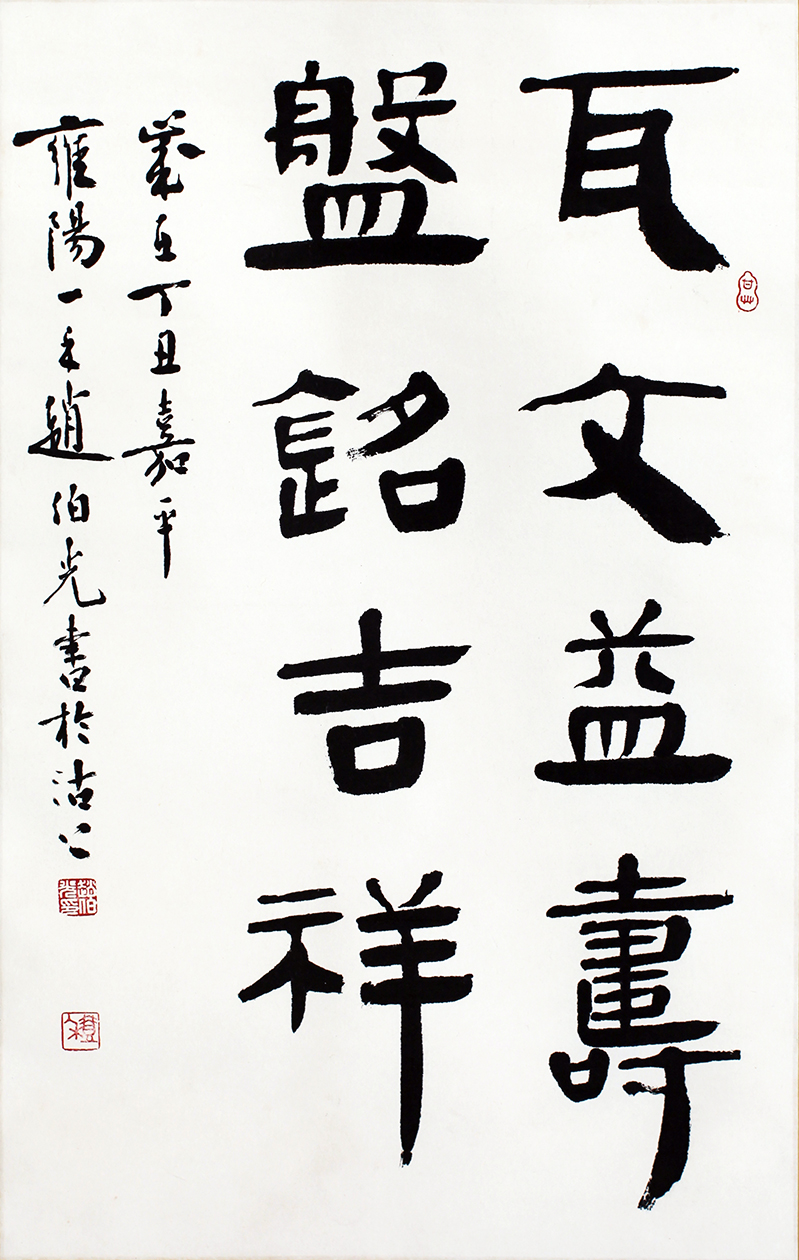 瓦文益壽
盤銘吉祥
歲在丁丑嘉平
雍陽一 趙伯光書於沽上
趙伯光印